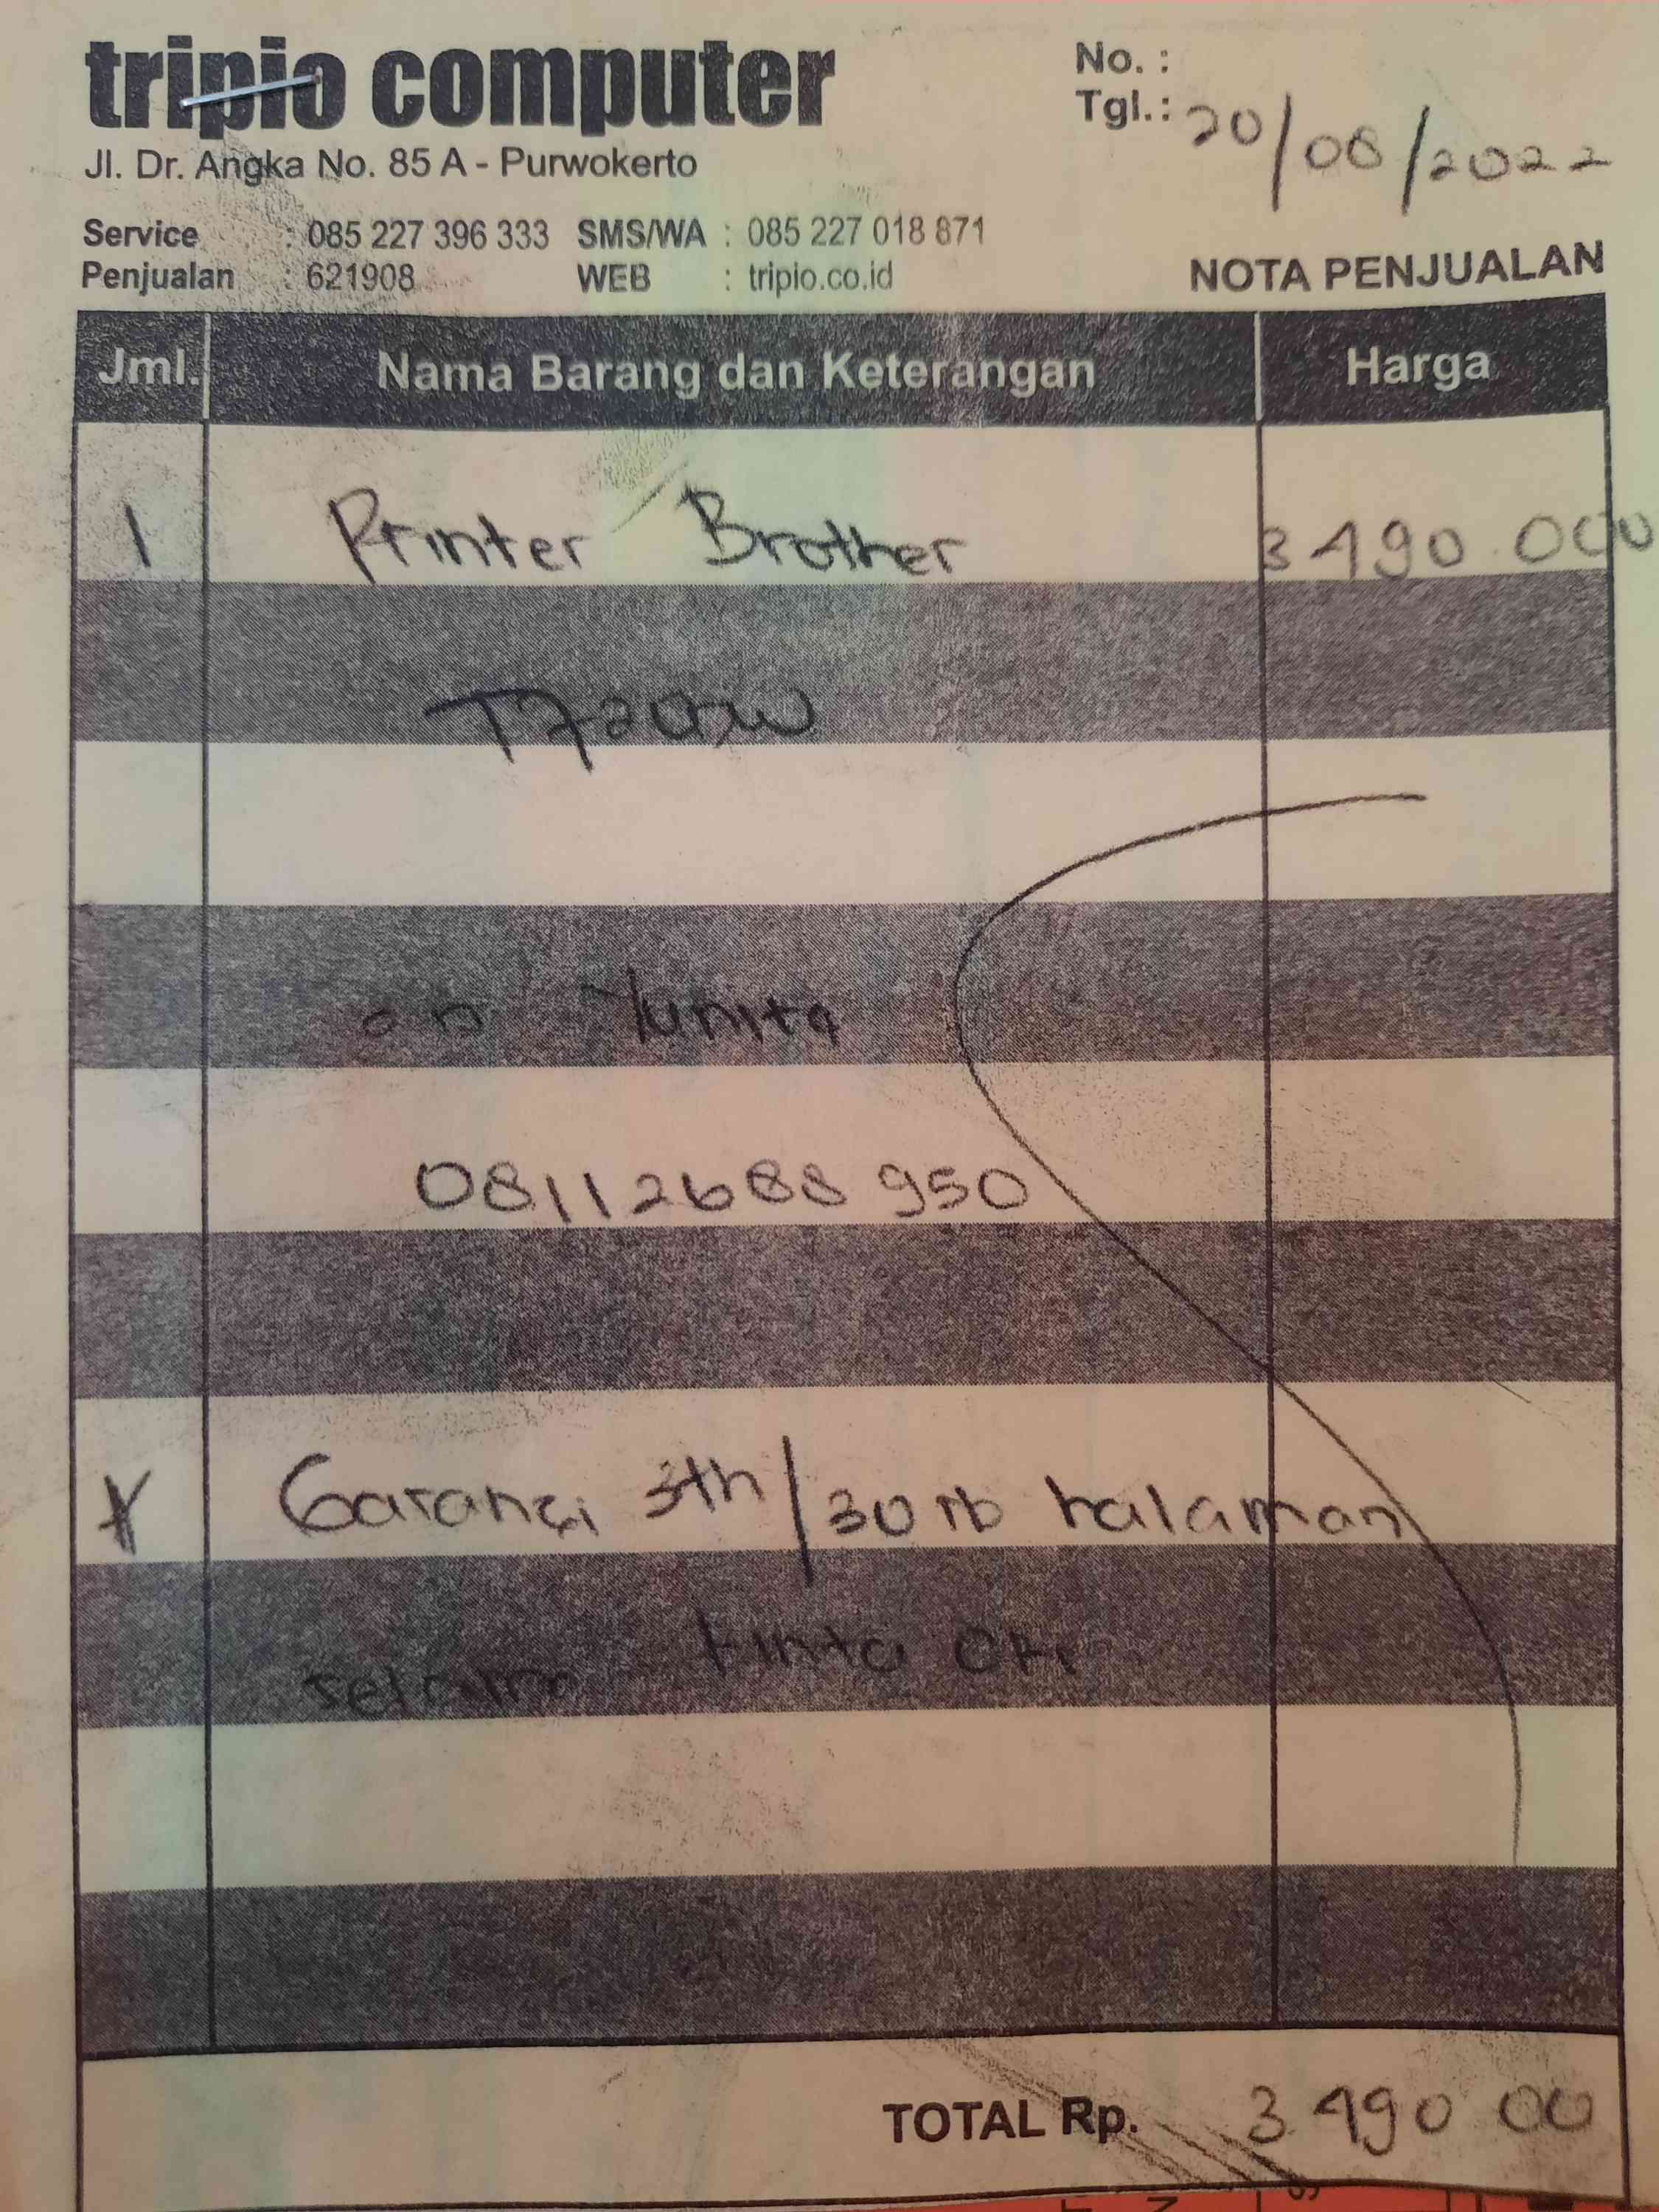 tripio computer
Jl. Dr. Angka No. 85 A - Purwokerto
No. :
Tgl.: 20/08/2022
Service : 085 227 396 333 SMS/WA : 085 227 018 871
Penjualan : 621908 WEB : tripio.co.id
NOTA PENJUALAN
Jml. Nama Barang dan Keterangan Harga
1 Printer Brother 3 490 000
T720DW
an Yunita
08112688 950
* Garansi 3th/30 rb halaman
selama tinta ori
TOTAL Rp. 3 490 00